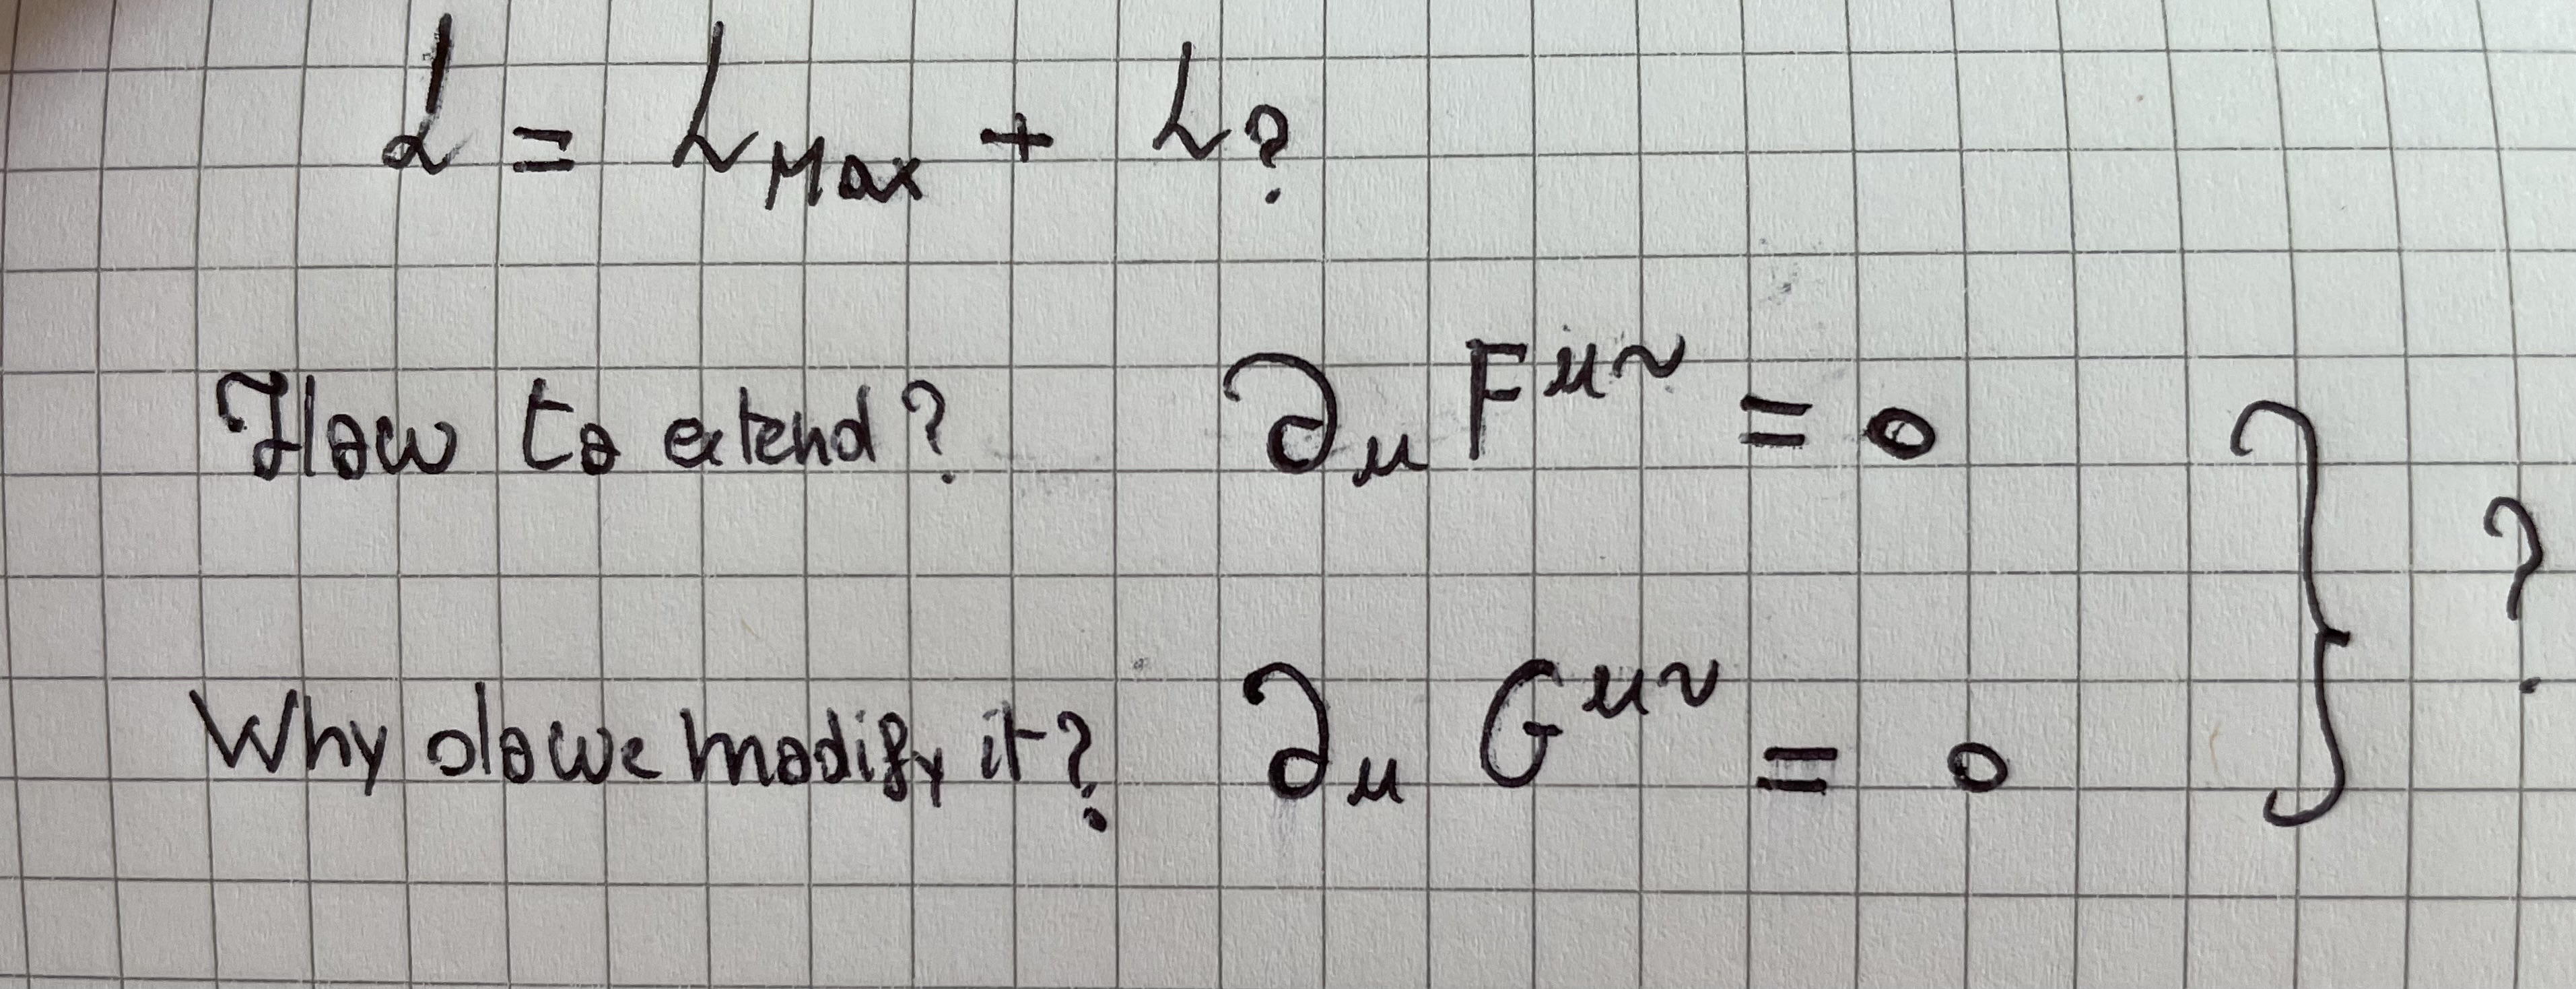 L = L_Max + L_?
How to extend? ∂_μ F^{μν} = 0
Why do we modify it? ∂_μ G^{μν} = 0 } ?